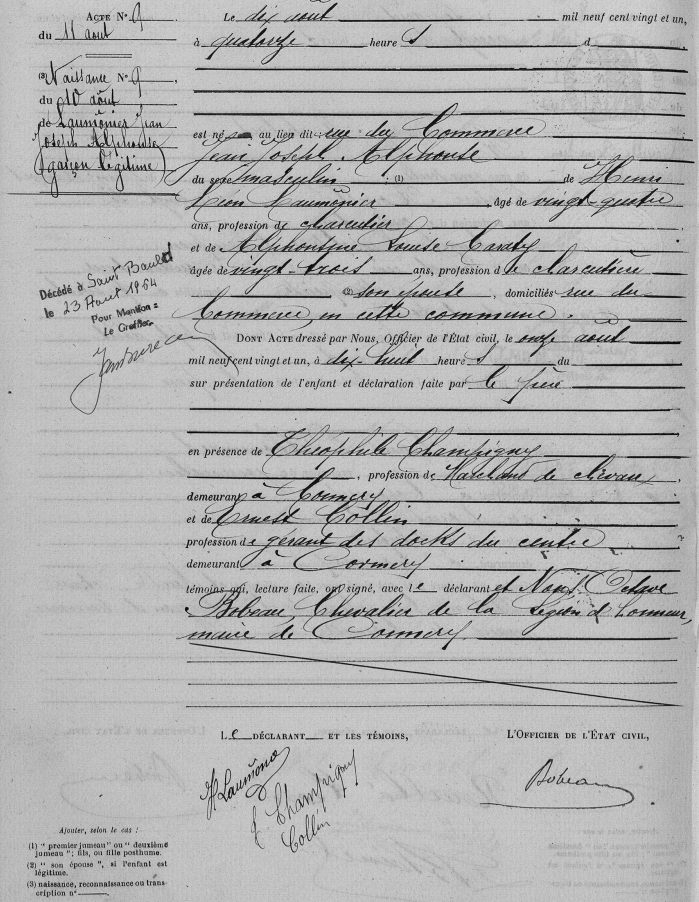 ACTE N° 9
du 11 août
(3) Naissance N° 9
du 10 août
de Laumônier Jean
Joseph Alphonse
garçon légitime)
Décédé à Saint Bauld
le 23 Août 1964
Pour Mention :
Le Greffier
Le dix août mil neuf cent vingt et un,
à quatorze heure s d
est né au lieu dit : rue du Commerce
Jean Joseph Alphonse
du sexe masculin ; (1) de Henri
Léon Laumônier, âgé de vingt-quatre
ans, profession de charcutier
et de Alphontine Louise
âgée de vingt-trois ans, profession de charcutière
(2) son épouse, domiciliés rue du
Commerce, en cette commune.
DONT ACTE dressé par Nous, Officier de l'État civil, le onze août
mil neuf cent vingt et un, à dix-huit heure s du
sur présentation de l'enfant et déclaration faite par le père
en présence de Théophile Champigny
, profession de Marchand de chevaux
demeurant à Cormery
et de Ernest Collin
profession de gérant des docks du centre
demeurant à Cormery
témoins qui, lecture faite, ont signé, avec le déclarant et Nous Octave
Bobeau, Chevalier de la Légion d'honneur,
maire de Cormery.
LE DÉCLARANT ET LES TÉMOINS,
L'OFFICIER DE L'ÉTAT CIVIL,
T Champigny
Collin
Bobeau
Ajouter, selon le cas :
(1) " premier jumeau " ou " deuxième
jumeau " ; fils, ou fille posthume.
(2) " son épouse ", si l'enfant est
légitime.
(3) naissance, reconnaissance ou trans-
cription n°